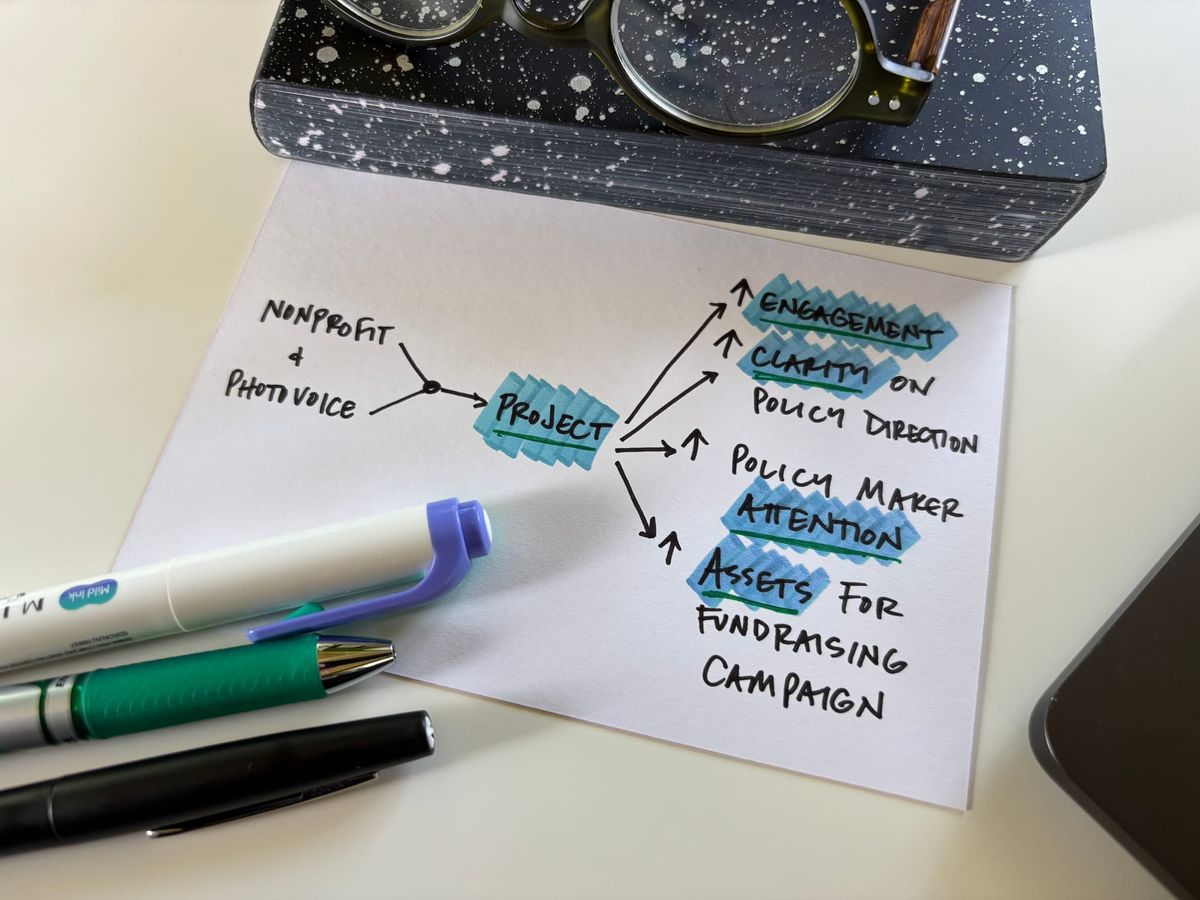 NONPROFIT
&
PHOTOVOICE
PROJECT
↑ ENGAGEMENT
↑ CLARITY ON
POLICY DIRECTION
↑ POLICY MAKER
ATTENTION
↑ ASSETS FOR
FUNDRAISING
CAMPAIGN
Mild Ink